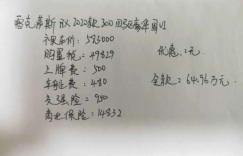 雷克萨斯 RX 2020款 300 四驱豪华国VI
裸车价: 593000
购置税: 49829
优惠: 2元.
上牌费: 500
车船费: 480
全款: 64.96万元
交强险: 950
商业保险: 14832